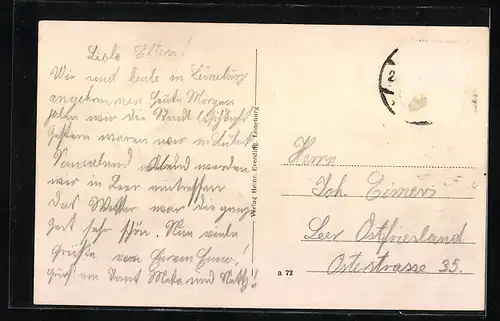 Liebe Eltern!
Wir sind heute in Lüneburg
angekommen heute Morgen
haben wir die Stadt besichtigt
Gestern waren wir in Lübeck
Sonnabend Abend werden
wir in Leer eintreffen
Das Wetter war die ganze
Zeit sehr schön. Nun viele
Grüße von Eurem
und
Verlag Heinr. Everding, Lüneburg
a 72
Herrn
Joh. Eimers
Leer Ostfriesland
Ostestrasse 35.